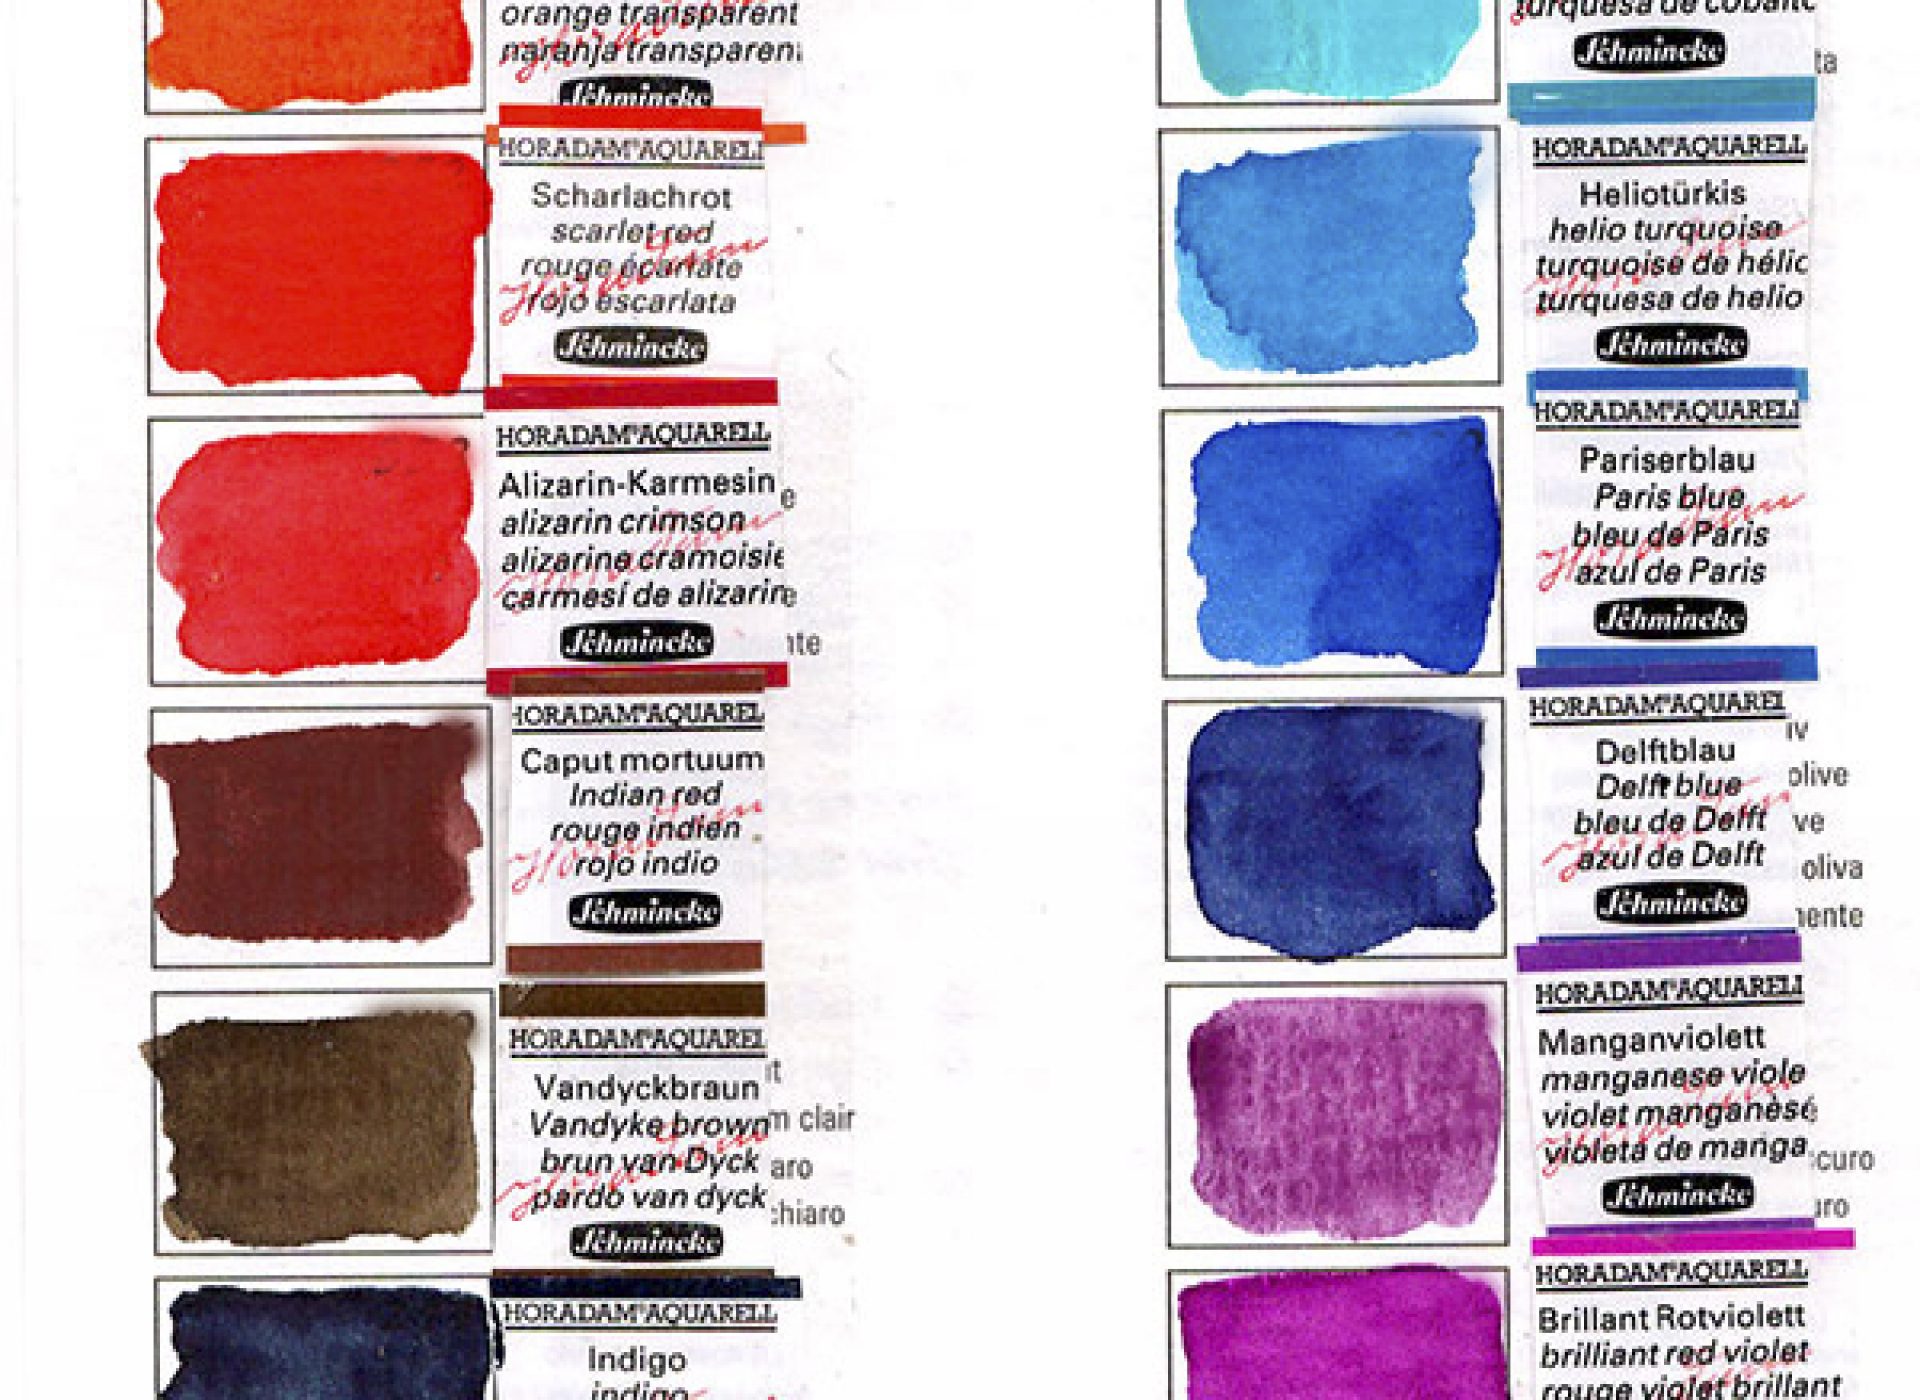 orange transparent
naranja transparent
Schmincke
HORADAM®AQUARELL
Scharlachrot
scarlet red
rouge écarlate
rojo escarlata
Schmincke
HORADAM®AQUARELL
Alizarin-Karmesin
alizarin crimson
alizarine cramoisie
carmesí de alizarin
Schmincke
HORADAM®AQUAREL
Caput mortuum
Indian red
rouge indien
rojo indio
Schmincke
HORADAM®AQUAREL
Vandyckbraun
Vandyke brown
clair
brun van Dyck
aro
pardo van dyck
chiaro
Schmincke
HORADAM®AQUARELL
Indigo
indigo
turquesa de cobalto
Schmincke
HORADAM®AQUARELL
Heliotürkis
helio turquoise
turquoise de hélio
turquesa de helio
Schmincke
HORADAM®AQUARELL
Pariserblau
Paris blue
bleu de Paris
azul de Paris
Schmincke
HORADAM®AQUAREL
Delftblau
Delft blue
olive
bleu de Delft
ve
azul de Delft
oliva
Schmincke
nente
HORADAM®AQUARELL
Manganviolett
manganese viole
violet manganèse
violeta de manga
curo
Schmincke
uro
HORADAM®AQUARELL
Brillant Rotviolett
brilliant red violet
rouge violet brillant